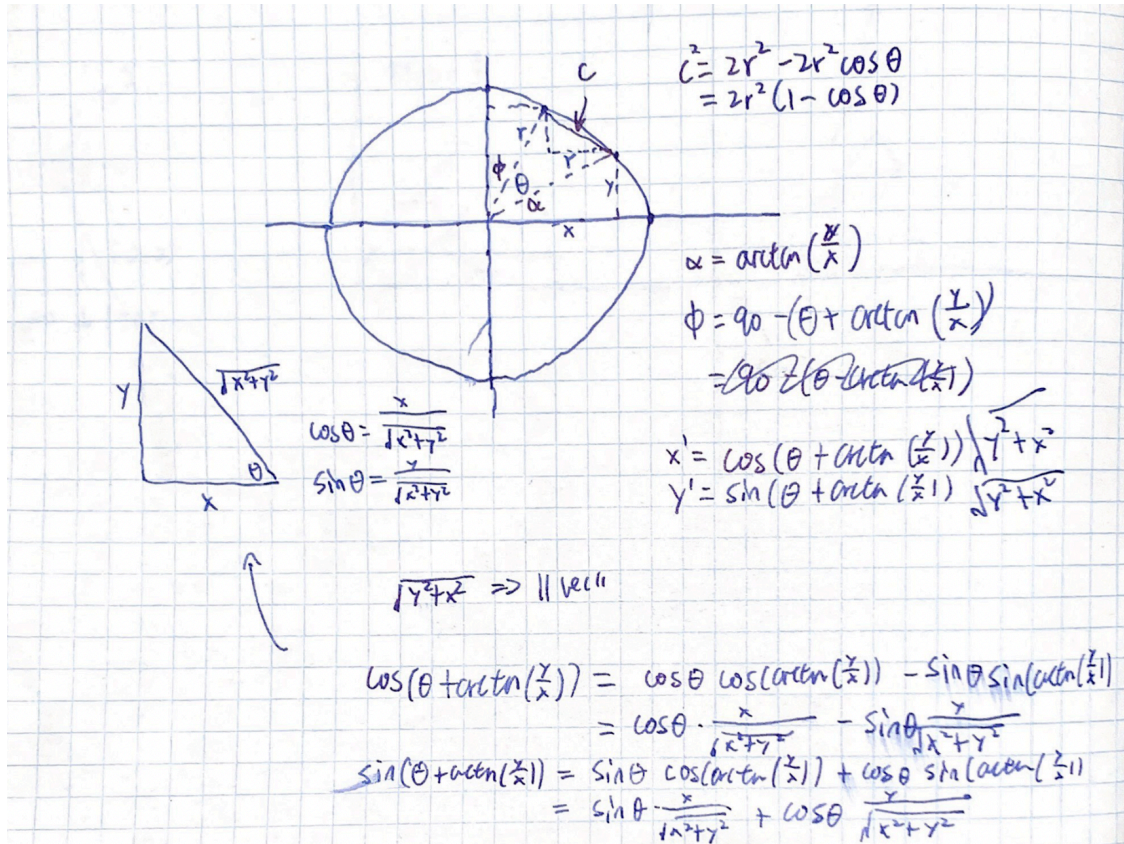 c² = 2r² - 2r² cos θ
= 2r² (1 - cos θ)
C
r
ϕ
θ
r
α
y
x
α = arctan (y/x)
ϕ = 90 - (θ + arctan (y/x))
y
√x²+y²
θ
x
cosθ = x/√x²+y²
sinθ = y/√x²+y²
x' = cos (θ + arctan (y/x)) √y²+x²
y' = sin (θ + arctan (y/x)) √y²+x²
√y²+x² => ||vec||
cos(θ + arctan(y/x)) = cosθ cos(arctan(y/x)) - sinθ sin(arctan(y/x))
= cosθ · x/√x²+y² - sinθ y/√x²+y²
sin(θ + arctan(y/x)) = sinθ cos(arctan(y/x)) + cosθ sin(arctan(y/x))
= sinθ · x/√x²+y² + cosθ y/√x²+y²